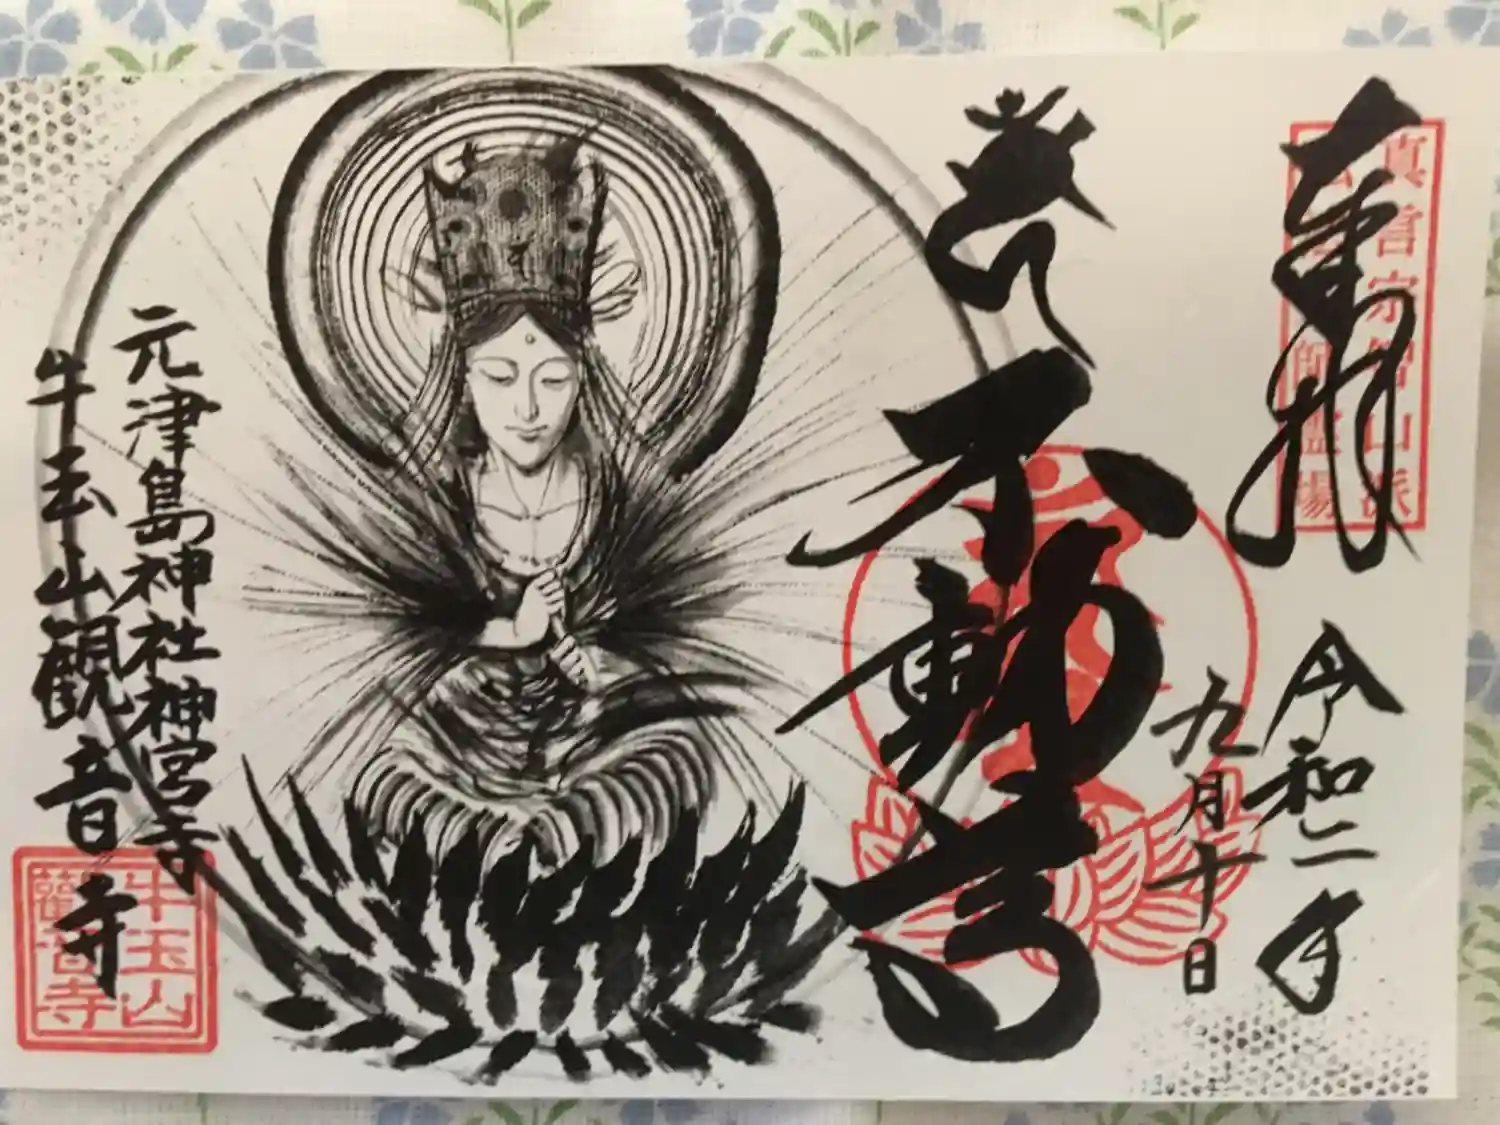 奉拝
真言宗智山派
師霊場
令和二年
九月十日
不動尊
元津島神社神宮寺
牛玉山観音寺
牛玉山
觀音寺